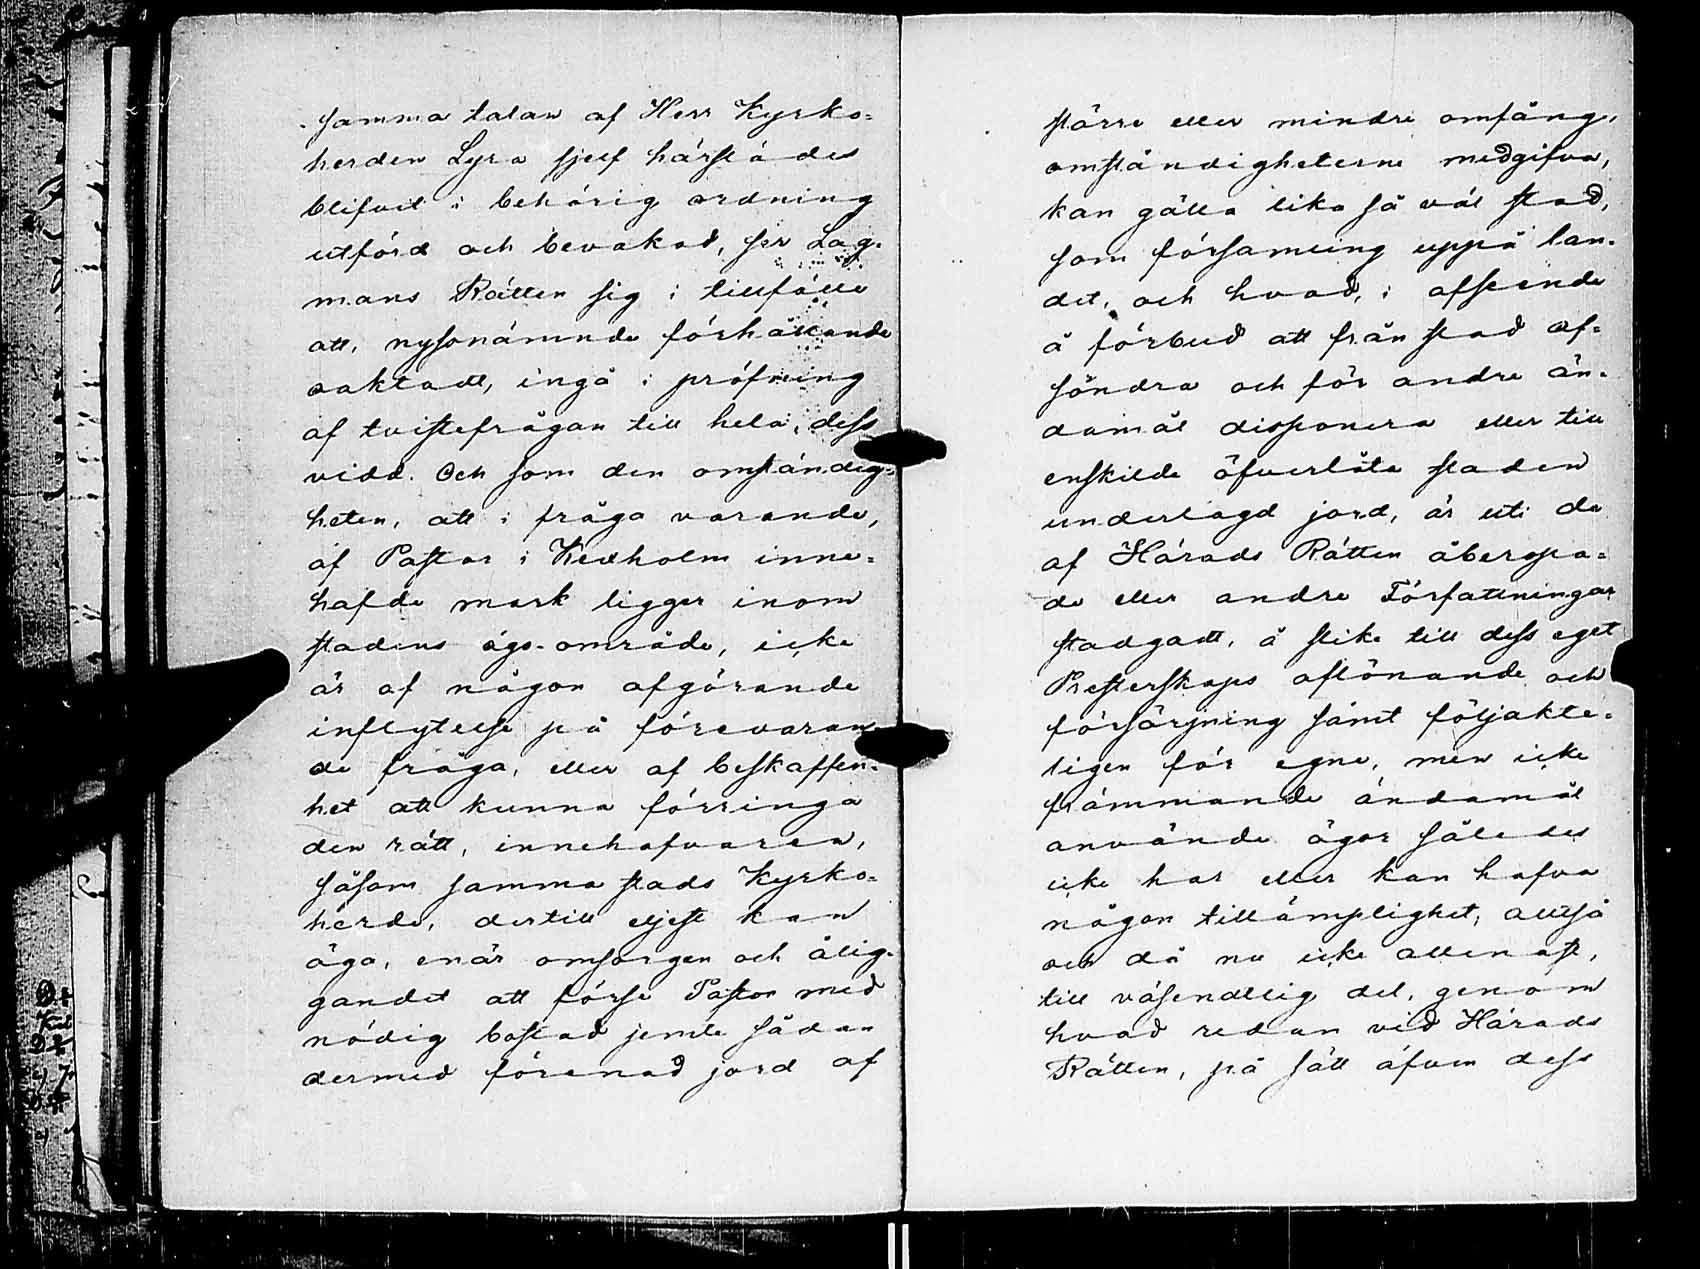 samma talan af Herr Kyrko-
herden Lyra sjelf härstädes
blifvit i behörig ordning
utförd och bevakad, ser Lag-
mans Rätten sig i tillfälle
att, nyssnämnde förhållande
oaktadt, ingå i pröfning
af tvistefrågan till hela dess
vidd. Och som den omständig-
heten, att i fråga varande,
af Pastor i Kexholm inne-
hafde mark ligger inom
stadens ägo-område, icke
är af någon afgörande
inflytelse på förevaran-
de fråga, eller af beskaffen-
het att kunna förringa
den rätt, innehafvaren,
såsom samma stads Kyrko-
herde, dertill eljest kan
äga, enär omsorgen och ålig-
gandet att förse Pastor med
nödig bostad jemte sådan
dermed förenad jord af
större eller mindre omfång,
omständigheterne medgifva,
kan gälla lika så väl stad,
som församling uppå lan-
det, och hvad, i afseende
å förbud att från stad af-
söndra och för andre än-
damål disponera eller till
enskilde öfverlåta staden
underlagd jord, är uti de
af Härads Rätten åberopa-
de eller andre Författningar
stadgadt, å slike till dess eget
Presterskaps aflönande och
försörjning samt följakte-
ligen för egne, men icke
främmande ändamål
använde ägor således
icke har eller kan hafva
någon tillämplighet; alltså
och då nu icke allenast,
till väsendtlig del, genom
hvad redan vid Härads
Rätten, på sätt äfven dess